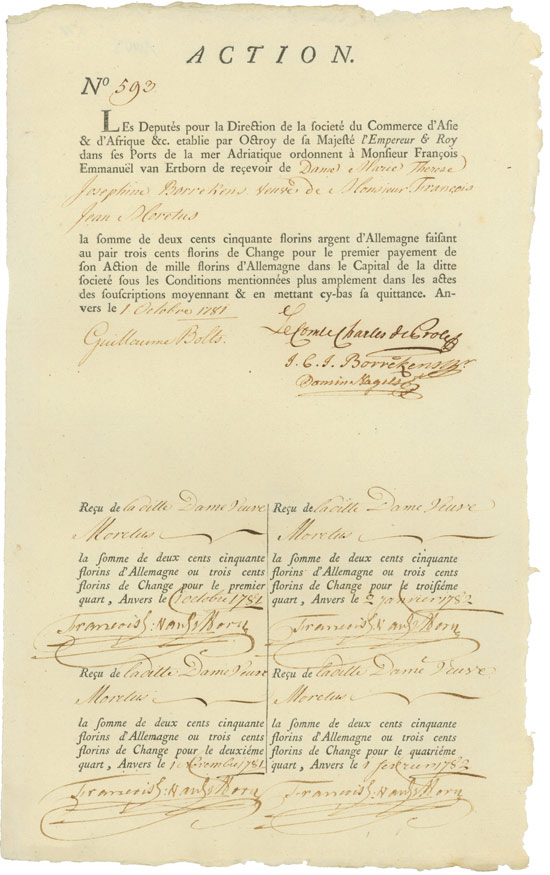 ACTION.
Nº 593
LEs Deputés pour la Direction de la societé du Commerce d'Asie
& d'Afrique &c. etablie par Octroy de sa Majesté l'Empereur & Roy
dans ses Ports de la mer Adriatique ordonnent à Monsieur François
Emmanuël van Ertborn de reçevoir de Dame Marie Therese
Josephine Borrekens veuve de Monsieur François
Jean Moretus
la somme de deux cents cinquante florins argent d'Allemagne faisant
au pair trois cents florins de Change pour le premier payement de
son Action de mille florins d'Allemagne dans le Capital de la ditte
societé sous les Conditions mentionnées plus amplement dans les actes
des souscriptions moyennant & en mettant cy-bas sa quittance. An-
vers le 1 Octobre 1781
Guillaume Bolts. Le Comte Charles de Proli
J. C. J. Borrekens
Reçu de laditte Dame Veuve
Moretus
la somme de deux cents cinquante
florins d'Allemagne ou trois cents
florins de Change pour le premier
quart, Anvers le 1 octobre 1781
Reçu de laditte Dame Veuve
Moretus
la somme de deux cents cinquante
florins d'Allemagne ou trois cents
florins de Change pour le troisiéme
quart, Anvers le 2 janvier 1782
Reçu de laditte Dame Veuve
Moretus
la somme de deux cents cinquante
florins d'Allemagne ou trois cents
florins de Change pour le deuxiéme
quart, Anvers le 1 1781
Reçu de laditte Dame Veuve
Moretus
la somme de deux cents cinquante
florins d'Allemagne ou trois cents
florins de Change pour le quatriéme
quart, Anvers le 1 fevrier 1782